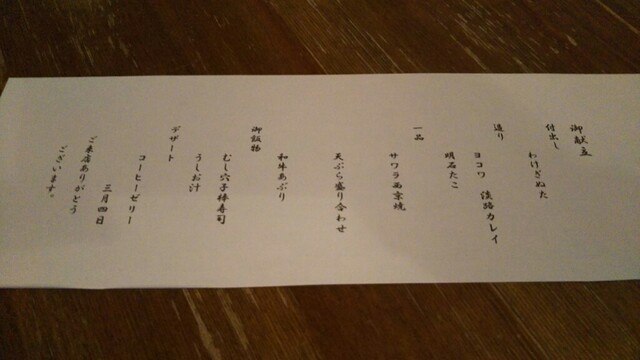 御献立
付出し
わけぎぬた
造り
ヨコワ 淡路カレイ
明石たこ
一品
サワラ西京焼
天ぷら盛り合わせ
和牛あぶり
御飯物
むし穴子棒寿司
うしお汁
デザート
コーヒーゼリー
三月四日
ご来店ありがとう
ございます。